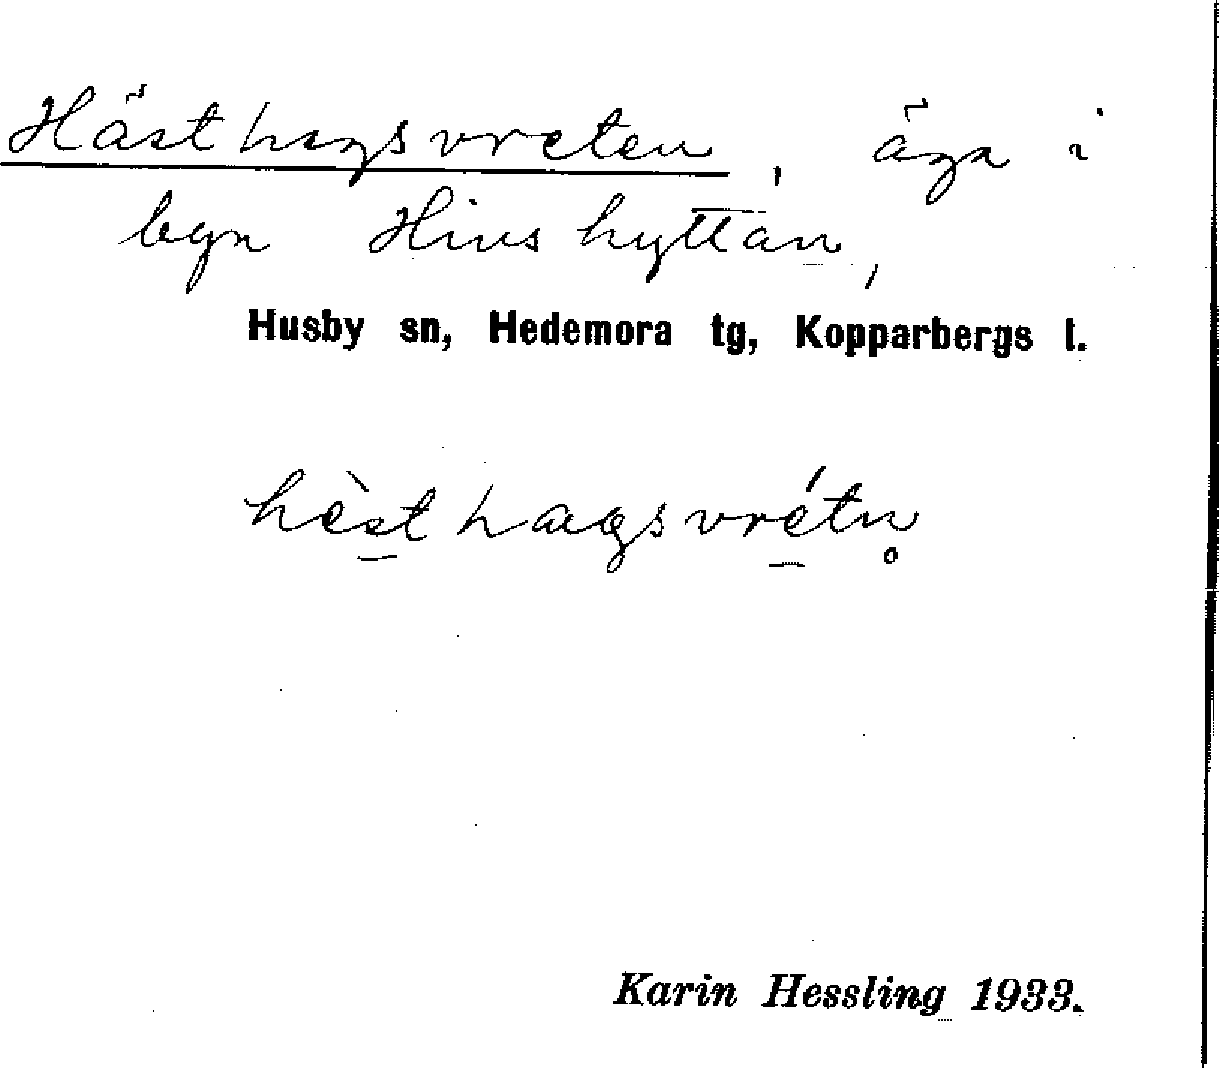 Hästhagsvreten, äga i
byn Hinshyttan,
Husby sn, Hedemora tg, Kopparbergs l.
hèsthagsvrétn̥
Karin Hessling 1933.